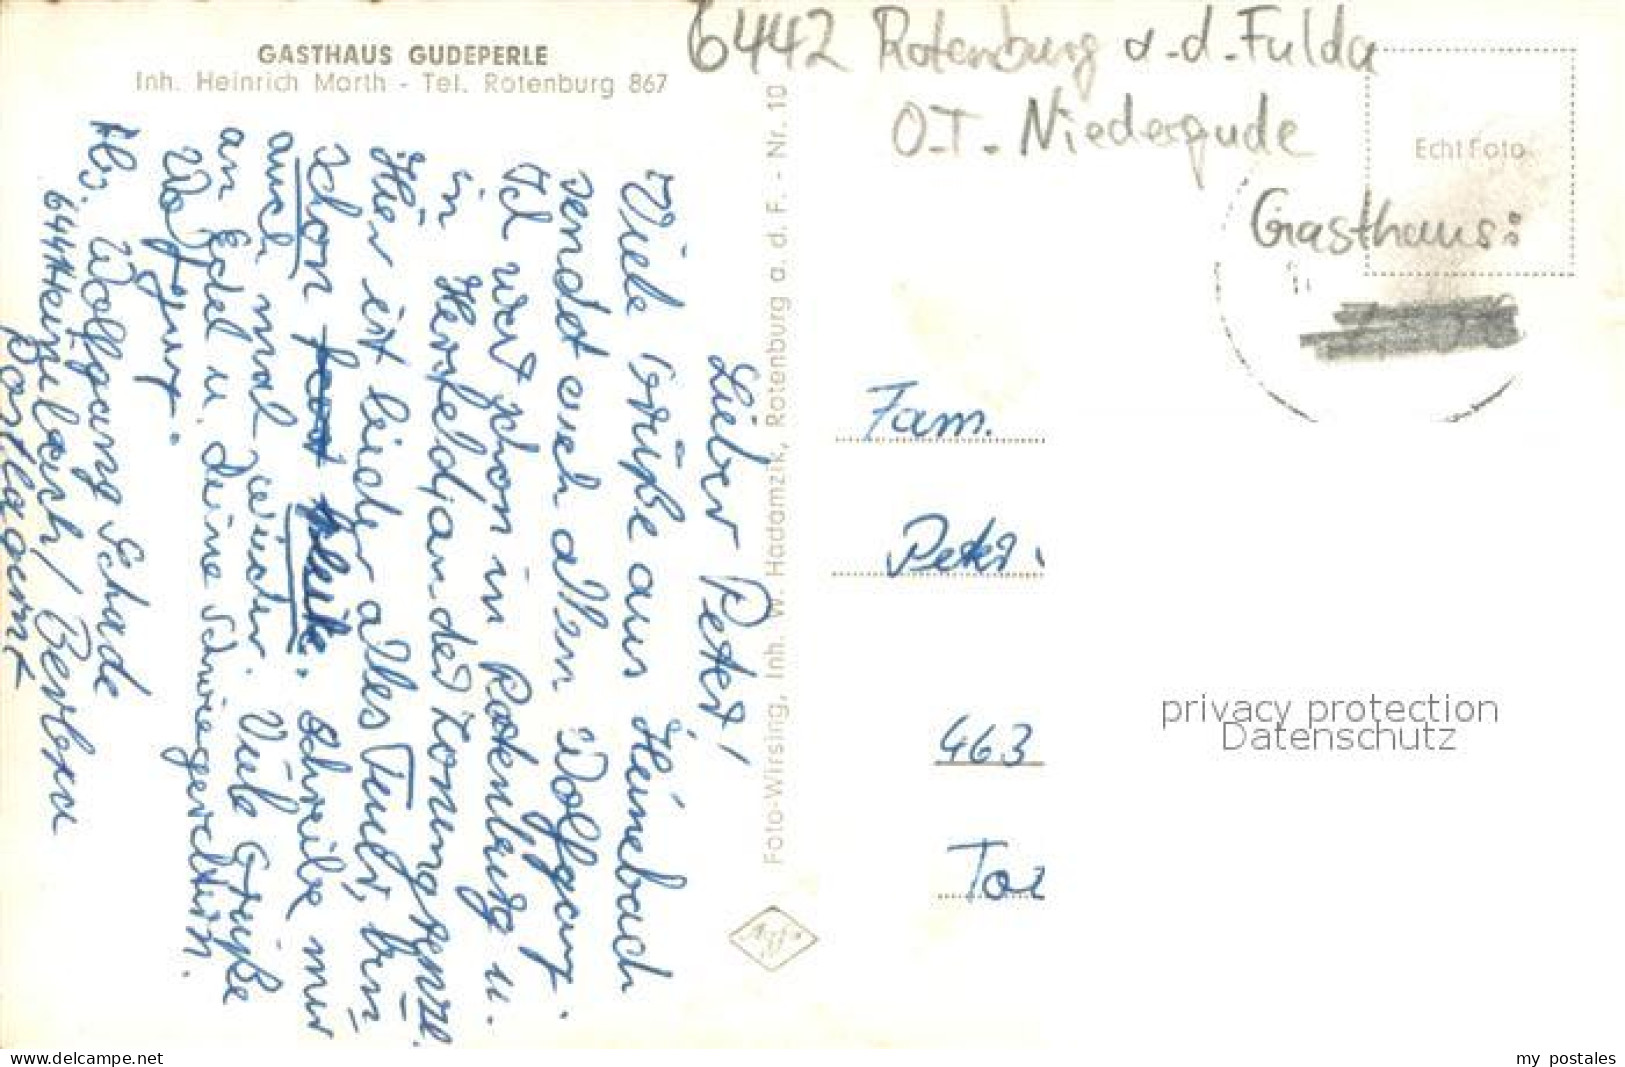 GASTHAUS GUDEPERLE
Inh. Heinrich Marth - Tel. Rotenburg 867
Lieber Peter!
Viele Grüße aus Heinebach
sendet euch allen Wolfgang.
Ich war schon in Rotenburg u.
in Hersfeld, an der Zonengrenze.
Hier ist leider alles Teuer, bin
schon pleite. Schreibe mir
auch mal wieder. Viele Grüße
an Edel u. Deine Schwiegereltern.
Wolfgang.
Abs. Wolfgang Schade
6441 Heinebach / Bebra
Postlagernd
Foto-Wirsing, Inh. W. Hadamzik, Rotenburg a. d. F. - Nr. 10
6442 Rotenburg a.-d.-Fulda
O.T. Niedergude
Echt Foto
Gasthaus:
Fam.
Peter
463
privacy protection
Datenschutz
www.delcampe.net
my_postales